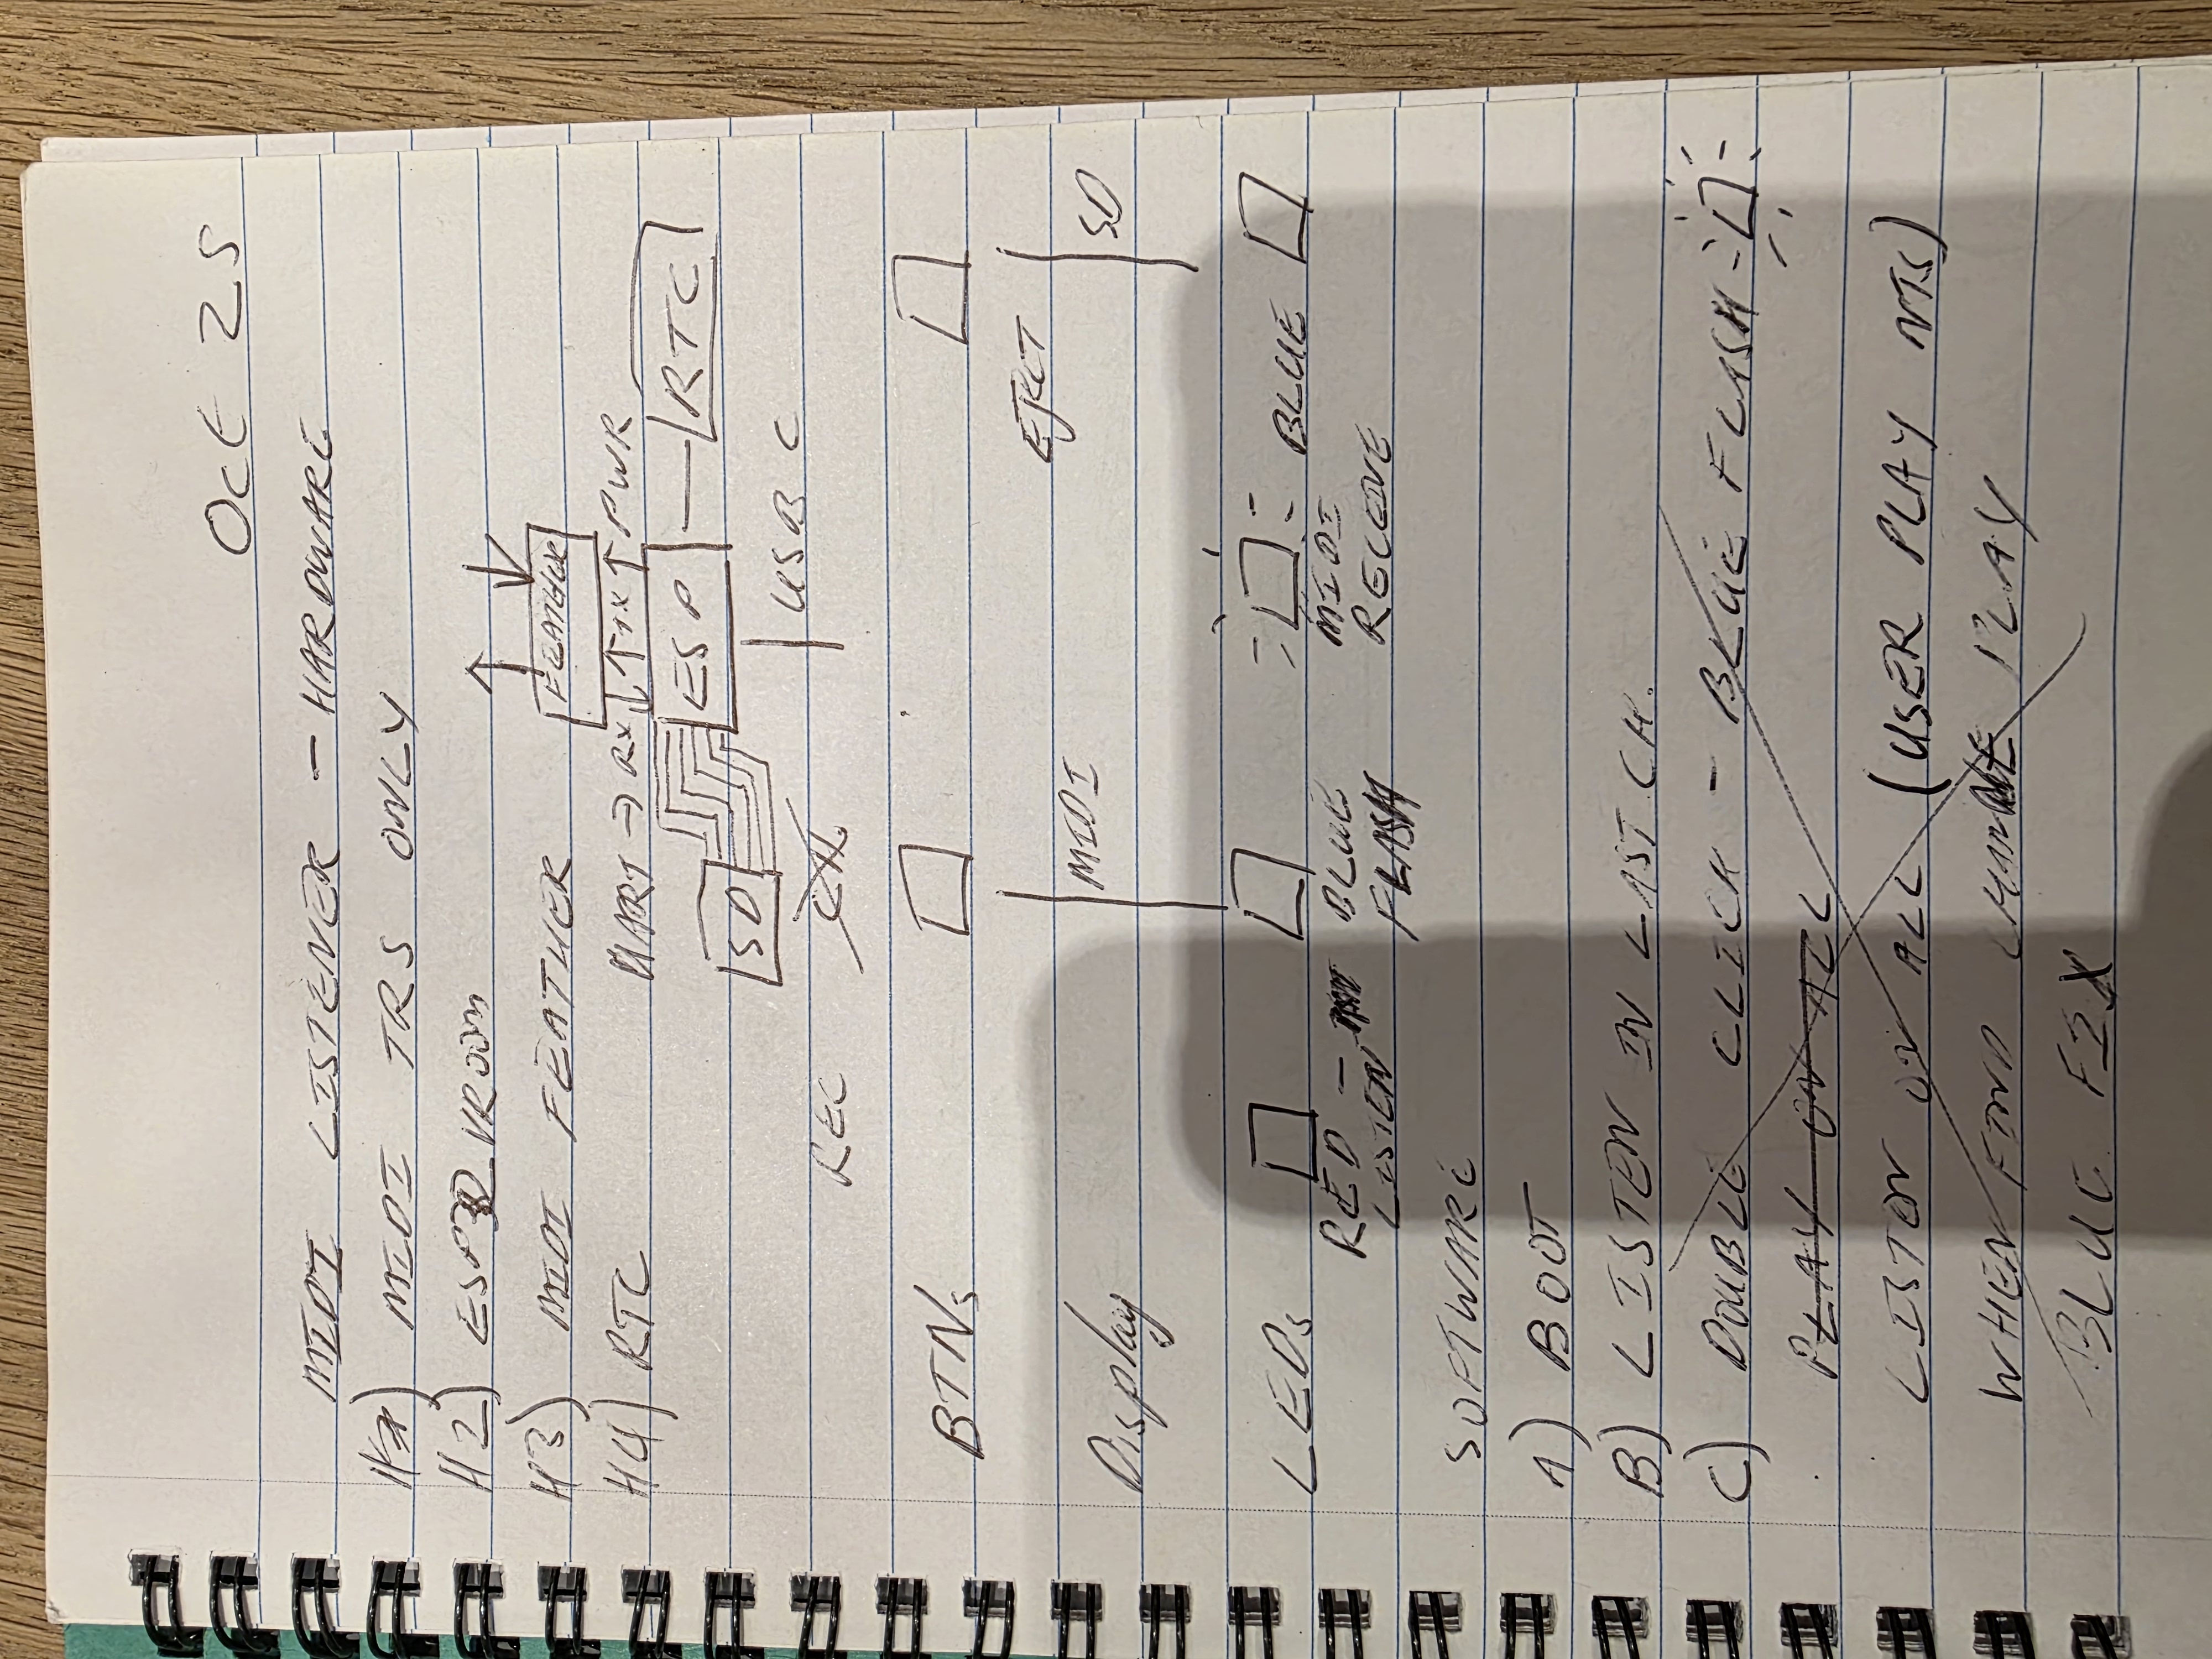 OCT 25
MIDI LISTENER - HARDWARE
MIDI TRS ONLY
H2) ESP32 VROOM
H3) MIDI FEATHER
FEATHER
H4) RTC
UART → RX TX PWR
SD ESP RTC
REC CH. USB C
BTNs
EJECT
Display MIDI SD
LEDs
RED - BLUE MIDI BLUE
LISTEN FLASH RECEIVE
SOFTWARE
A) BOOT
B) LISTEN IN LAST CH.
C) DOUBLE CLICK - BLUE FLASH
PLAY ON ALL
LISTEN ON ALL (USER PLAY NTS)
WHEN FIND PLAY
BLUE F2X